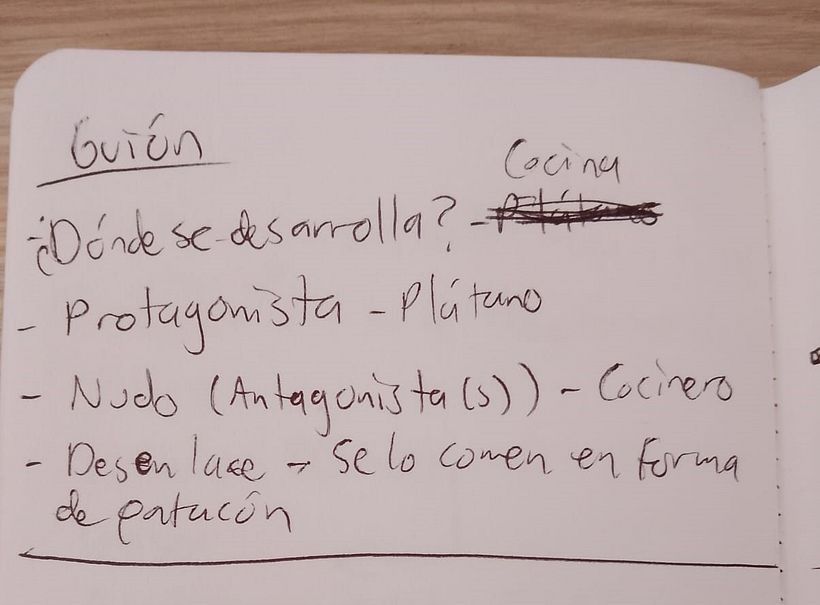 Guión
Cocina
¿Dónde se desarrolla? - Plátano
- Protagonista - Plátano
- Nudo (Antagonista(s)) - Cocinero
- Desenlace - Se lo comen en forma
de patacón